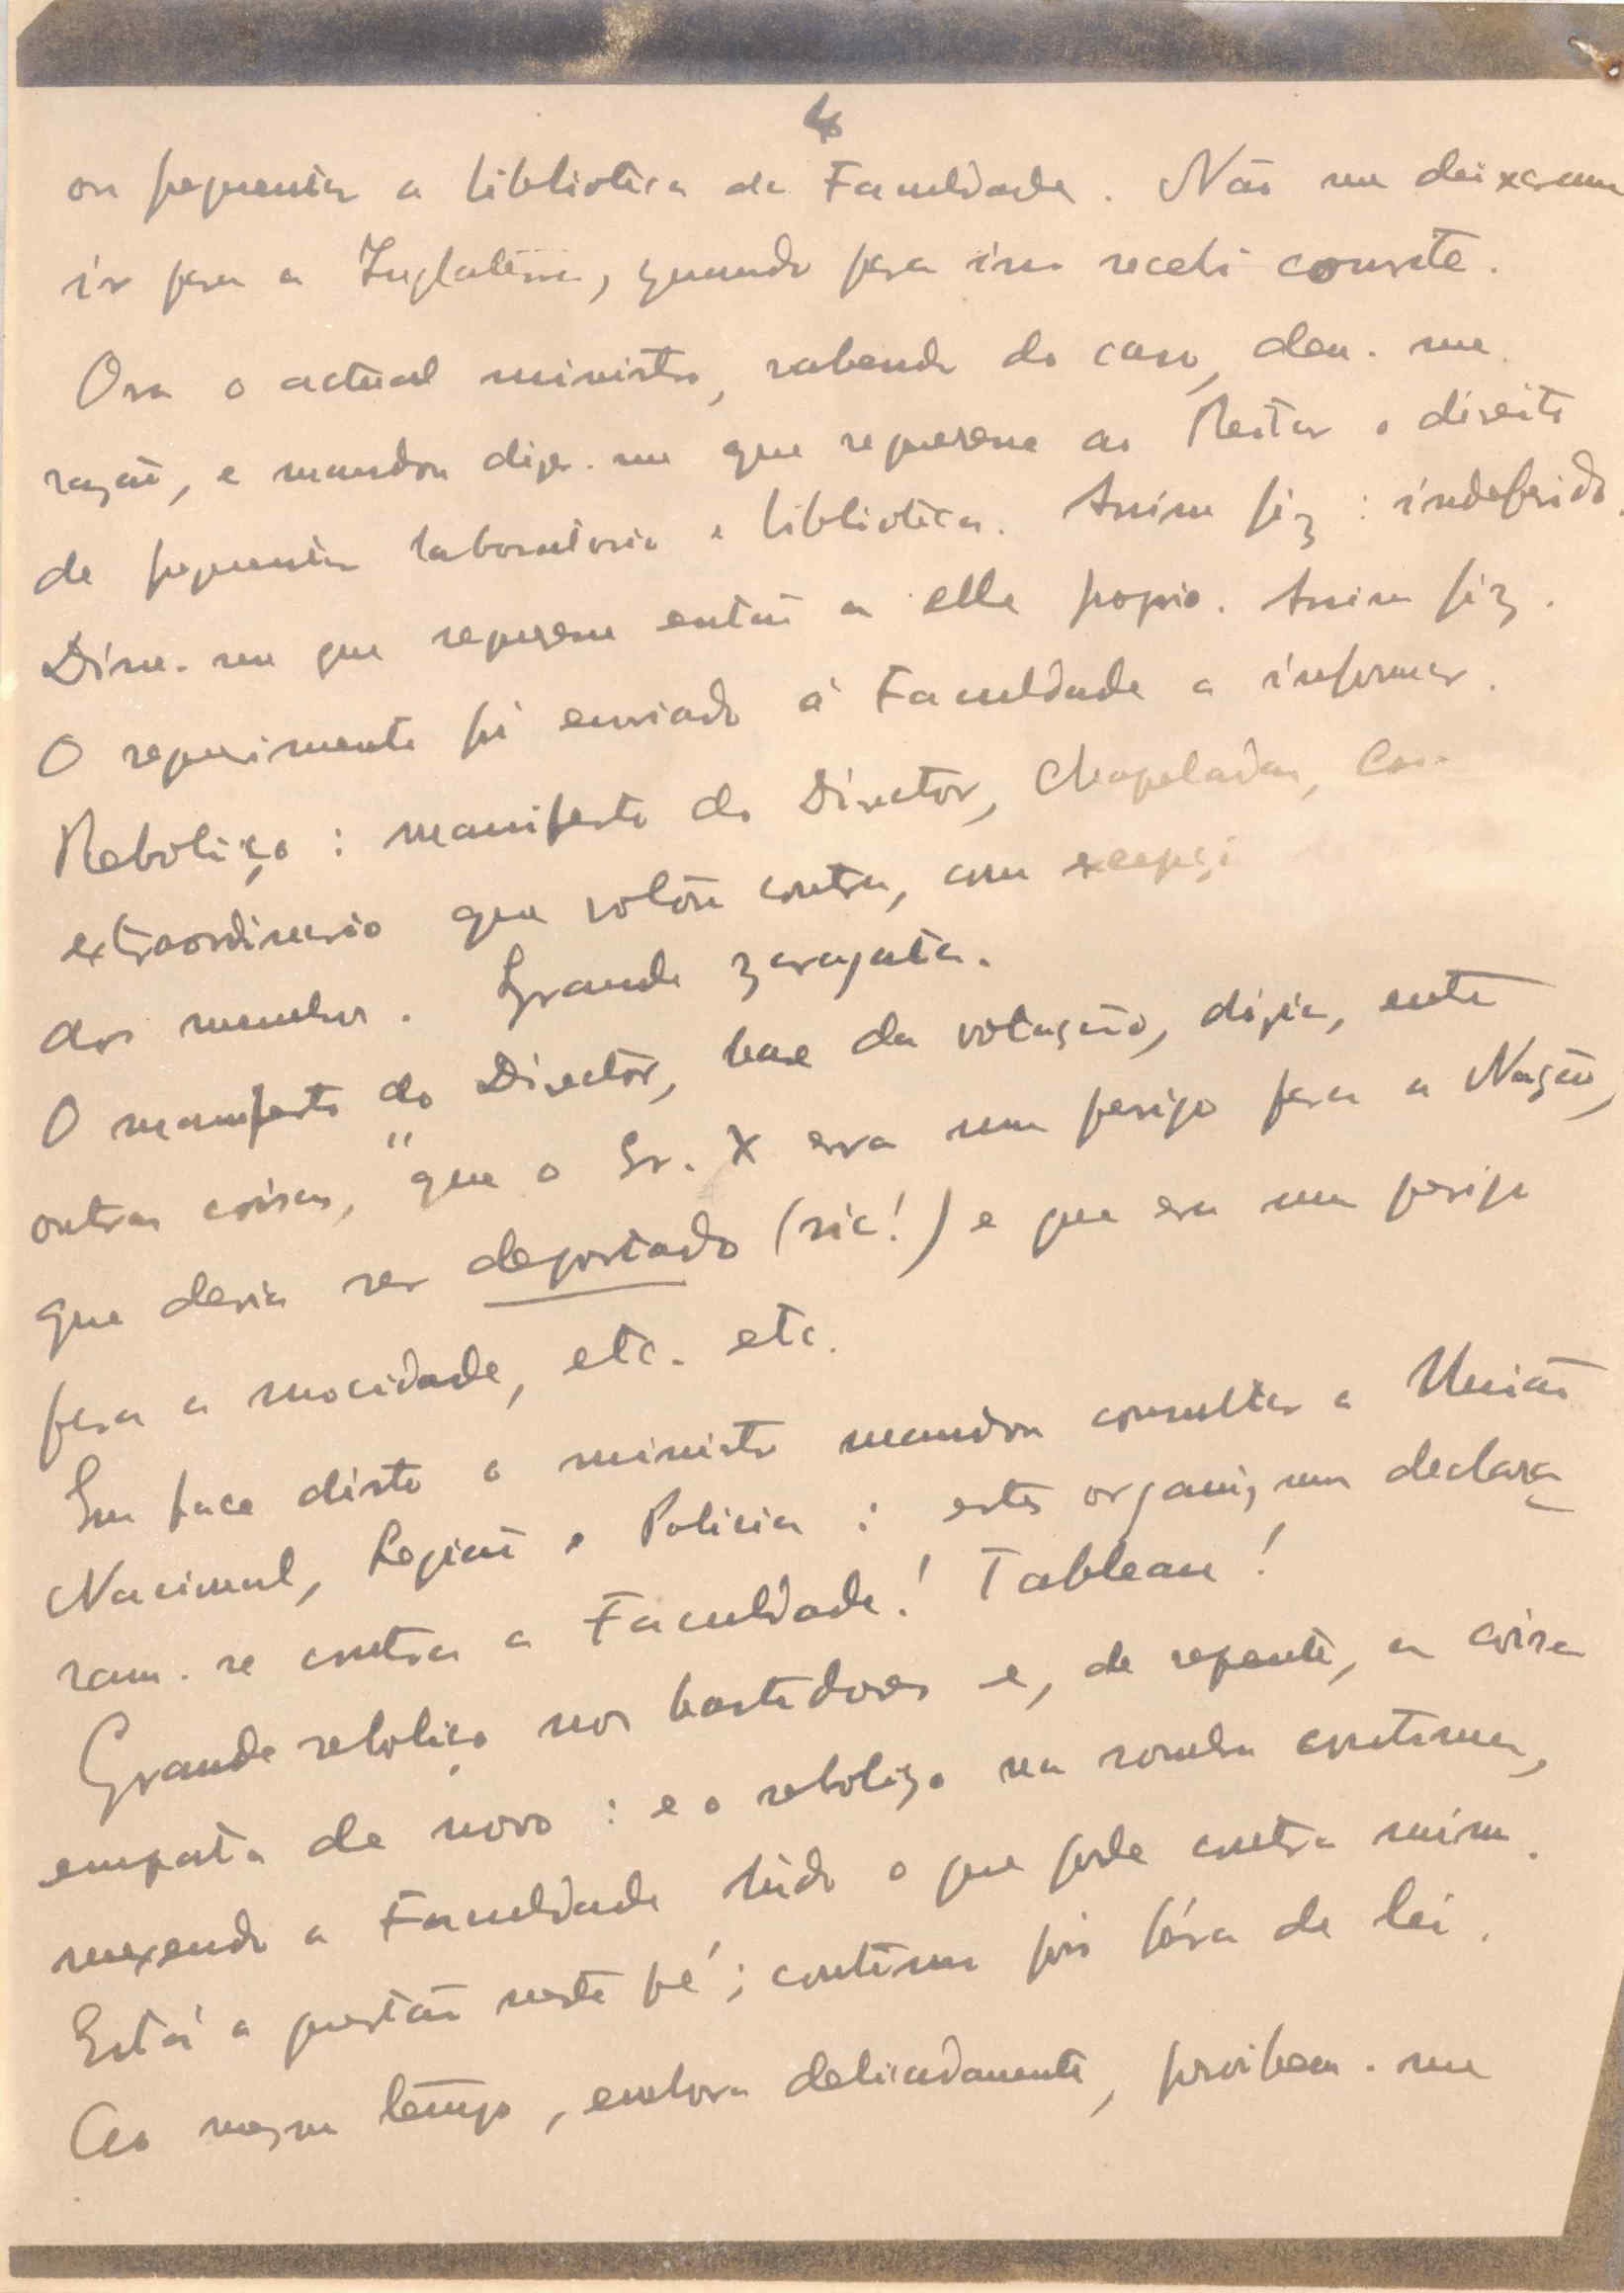 4
ou frequentar a biblioteca da Faculdade. Não me deixaram
ir para a Inglaterra, quando para isso recebi convite.
Ora o actual ministro, sabendo do caso, deu-me
razão, e mandou dizer-me que requeresse ao Reitor o direito
de frequentar laboratorio e biblioteca. Assim fiz: indeferido.
Disse-me que requeresse então a elle proprio. Assim fiz.
O requerimento foi enviado á Faculdade a informar.
Reboliço: manifesto do Director, Chapeladas,
extraordinario que votou contra, com
dos membros. Grande zaragata.
O manifesto do Director, base da votação, dizia, entre
outras coisas, "que o Sr. X era um perigo para a Nação,
que devia ser deportado (sic!) e que era um perigo
para a mocidade, etc. etc.
Em face disto o ministro mandou consultar a União
Nacional, Legião e Policia: estes declara
ram-se contra a Faculdade! Tableau!
Grande reboliço nos bastidores e, de repente, a coisa
empata de novo: e o reboliço na sombra continua,
mexendo a Faculdade tudo o que pode contra mim.
Está a questão neste pé; continuo pois fóra da lei.
Ao mesmo tempo, embora delicadamente, proibem-me